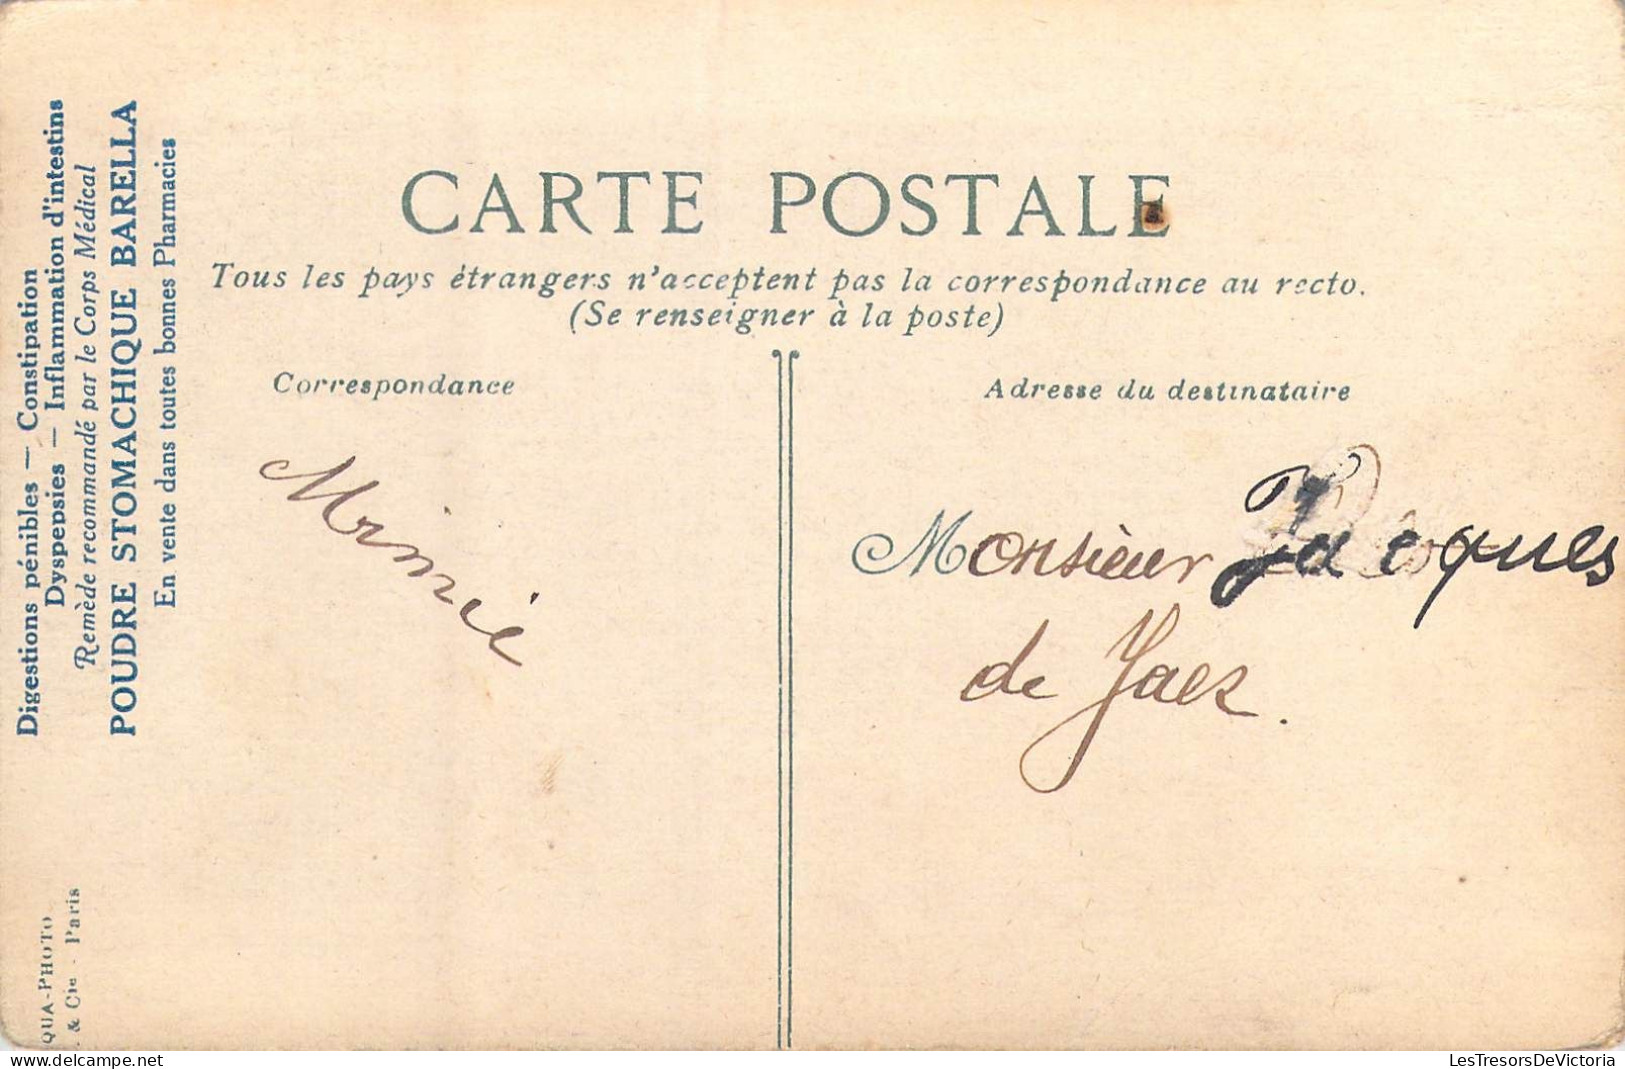 Digestions pénibles — Constipation
Dyspepsies — Inflammation d'intestins
Remède recommandé par le Corps Médical
POUDRE STOMACHIQUE BARELLA
En vente dans toutes bonnes Pharmacies
CARTE POSTALE
Tous les pays étrangers n'acceptent pas la correspondance au recto.
(Se renseigner à la poste)
Correspondance
Adresse du destinataire
Mimie
Monsieur Jacques
de Jaer.
QUA-PHOTO
. & Cie - Paris
LesTresorsDeVictoria